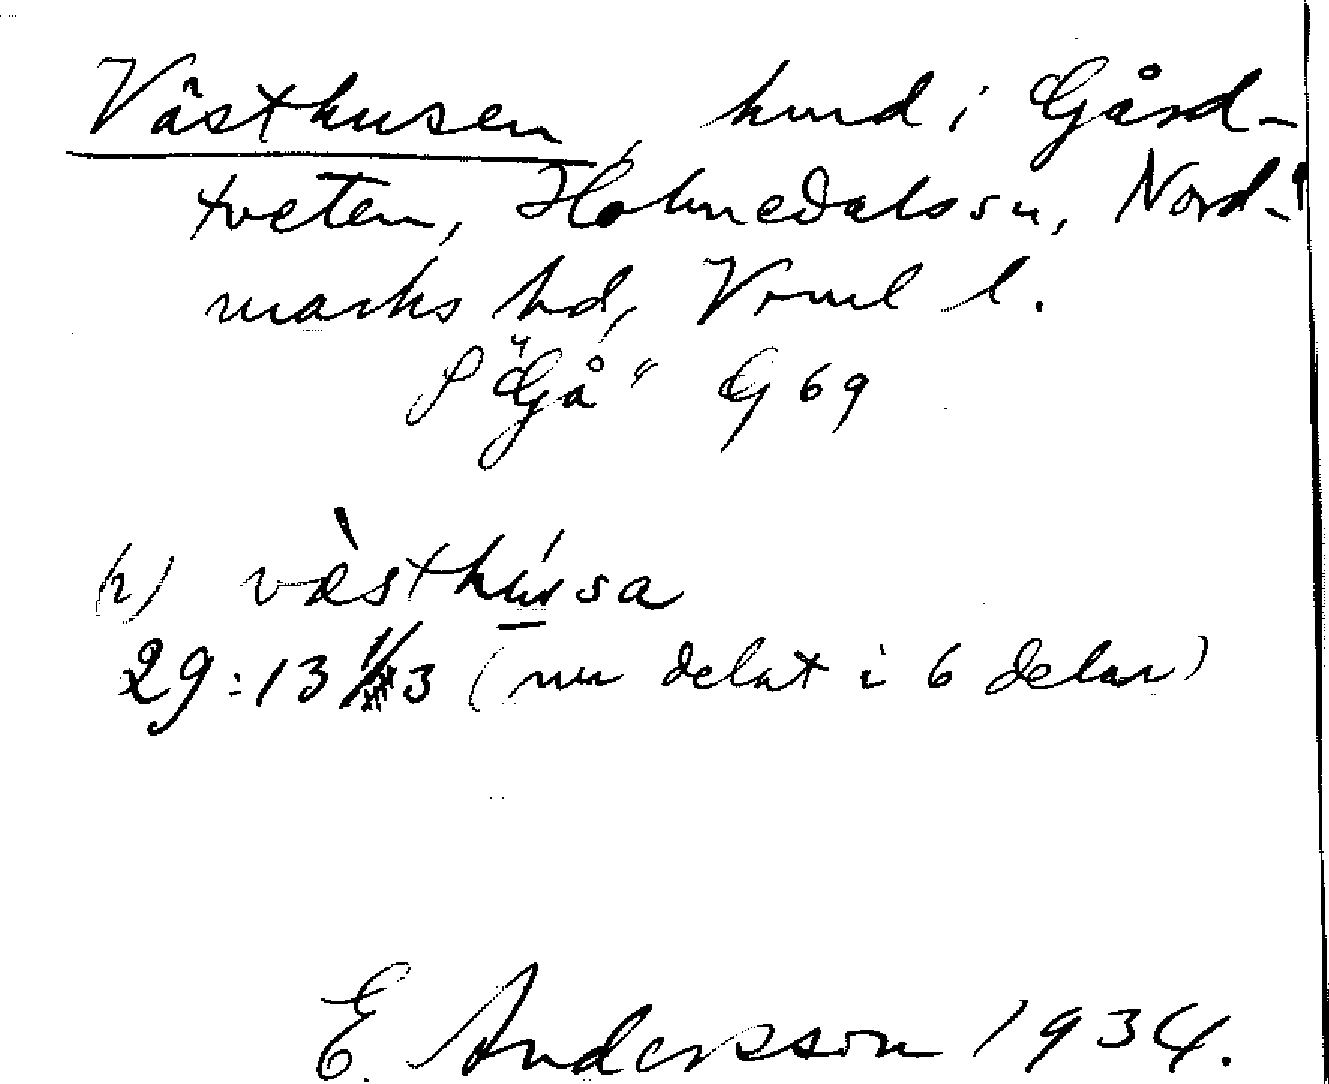 Västhusen, hmd i Gård-
tveten, Holmedals sn, Nord-
marks hd, Vrml l.
"Gå" G 69
(h) vàsthúsa
29:13 (nu delat i 6 delar)
E. Andersson 1934.